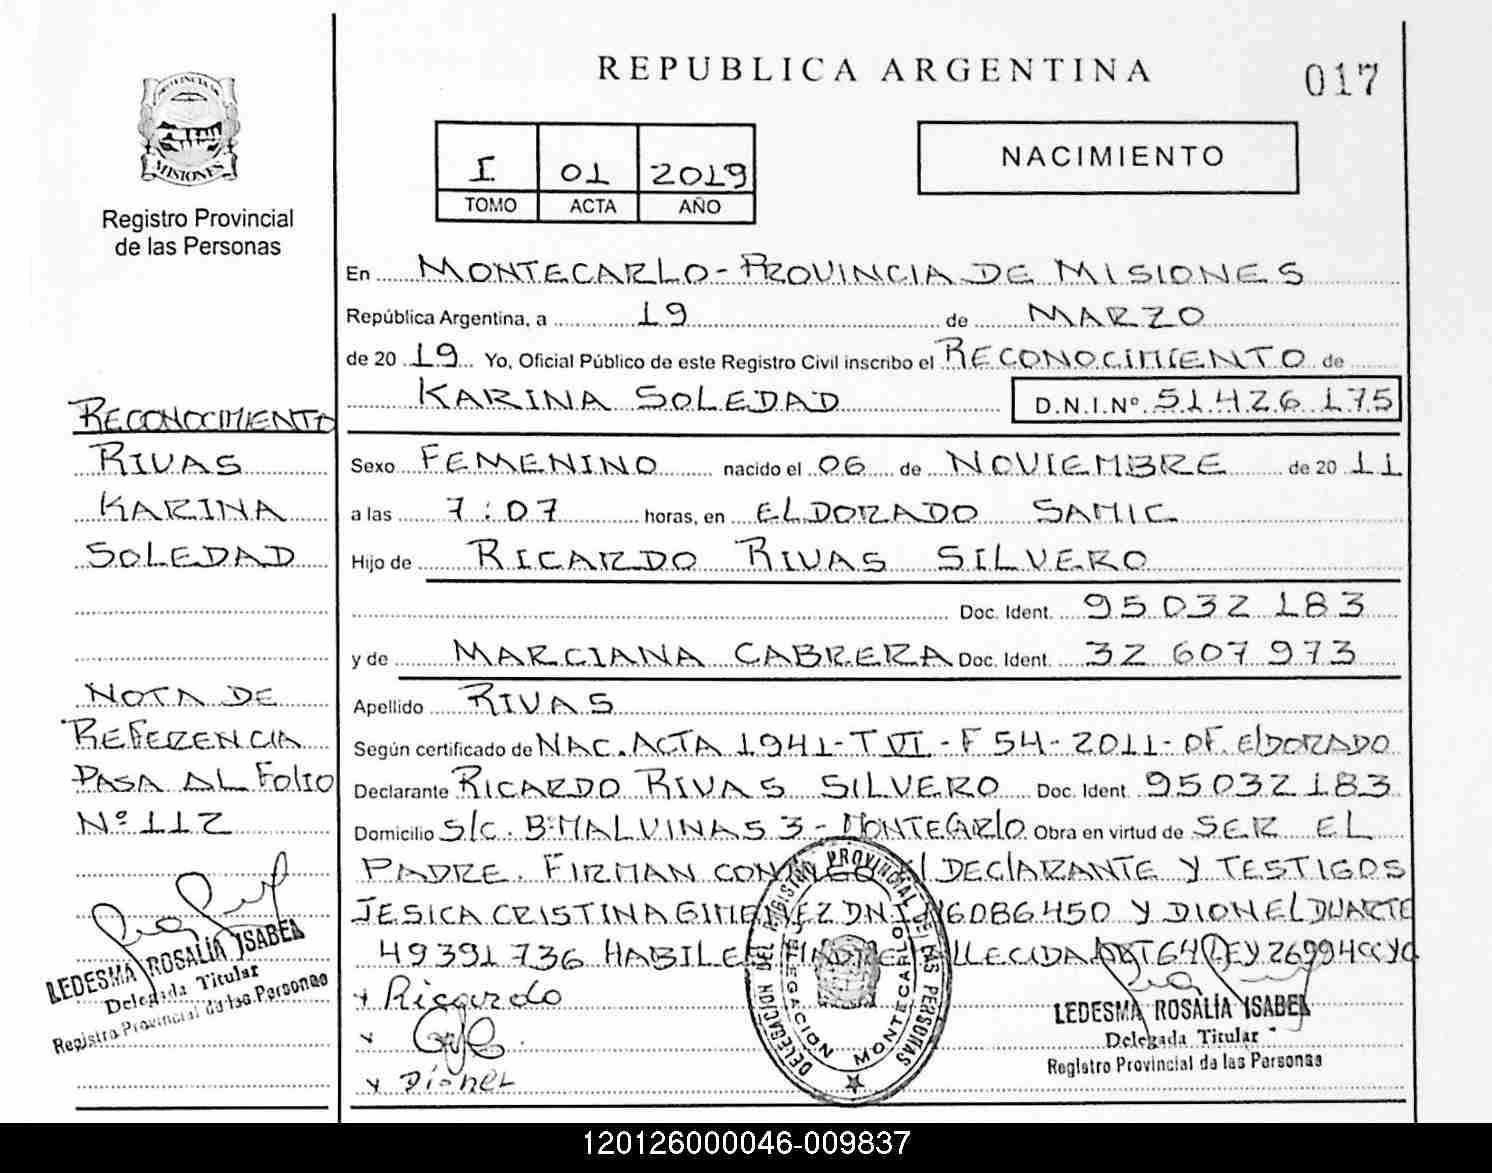 REPUBLICA ARGENTINA
017
PROVINCIA DE
MISIONES
Registro Provincial
de las Personas
I 01 2019
TOMO ACTA AÑO
NACIMIENTO
En MONTECARLO - PROVINCIA DE MISIONES
República Argentina, a 19 de MARZO
de 2019 Yo, Oficial Público de este Registro Civil inscribo el RECONOCIMIENTO de
KARINA SOLEDAD D.N.I.Nº 51426175
RECONOCIMIENTO
RIVAS
KARINA
SOLEDAD
NOTA DE
REFERENCIA
PASA AL FOLIO
Nº 112
LEDESMA ROSALÍA ISABEL
Delegada Titular
Registro Provincial de las Personas
Sexo FEMENINO nacido el 06 de NOVIEMBRE de 2011
a las 7:07 horas, en ELDORADO SAMIC
Hijo de RICARDO RIVAS SILVERO
Doc. Ident. 95 032 183
y de MARCIANA CABRERA Doc. Ident. 32 607 973
Apellido RIVAS
Según certificado de NAC. ACTA 1941 - T VI - F 54 - 2011 - OF. ElDORADO
Declarante RICARDO RIVAS SILVERO Doc. Ident. 95 032 183
Domicilio S/C. Bº MALVINAS 3 - MONTECARlO Obra en virtud de SER EL
PADRE. FIRMAN DEClARANTE Y TESTIGOS
JESICA CRISTINA GIMENEZ Y DIONEL DUARTE
49391736 ART 64 LEY 26994 CC Y C
Ricardo
Dionel
DELEGACION DEL REGISTRO PROVINCIAL DE LAS PERSONAS
DELEGACION MONTECARLO
LEDESMA ROSALÍA ISABEL
Delegada Titular
Registro Provincial de las Personas
120126000046-009837